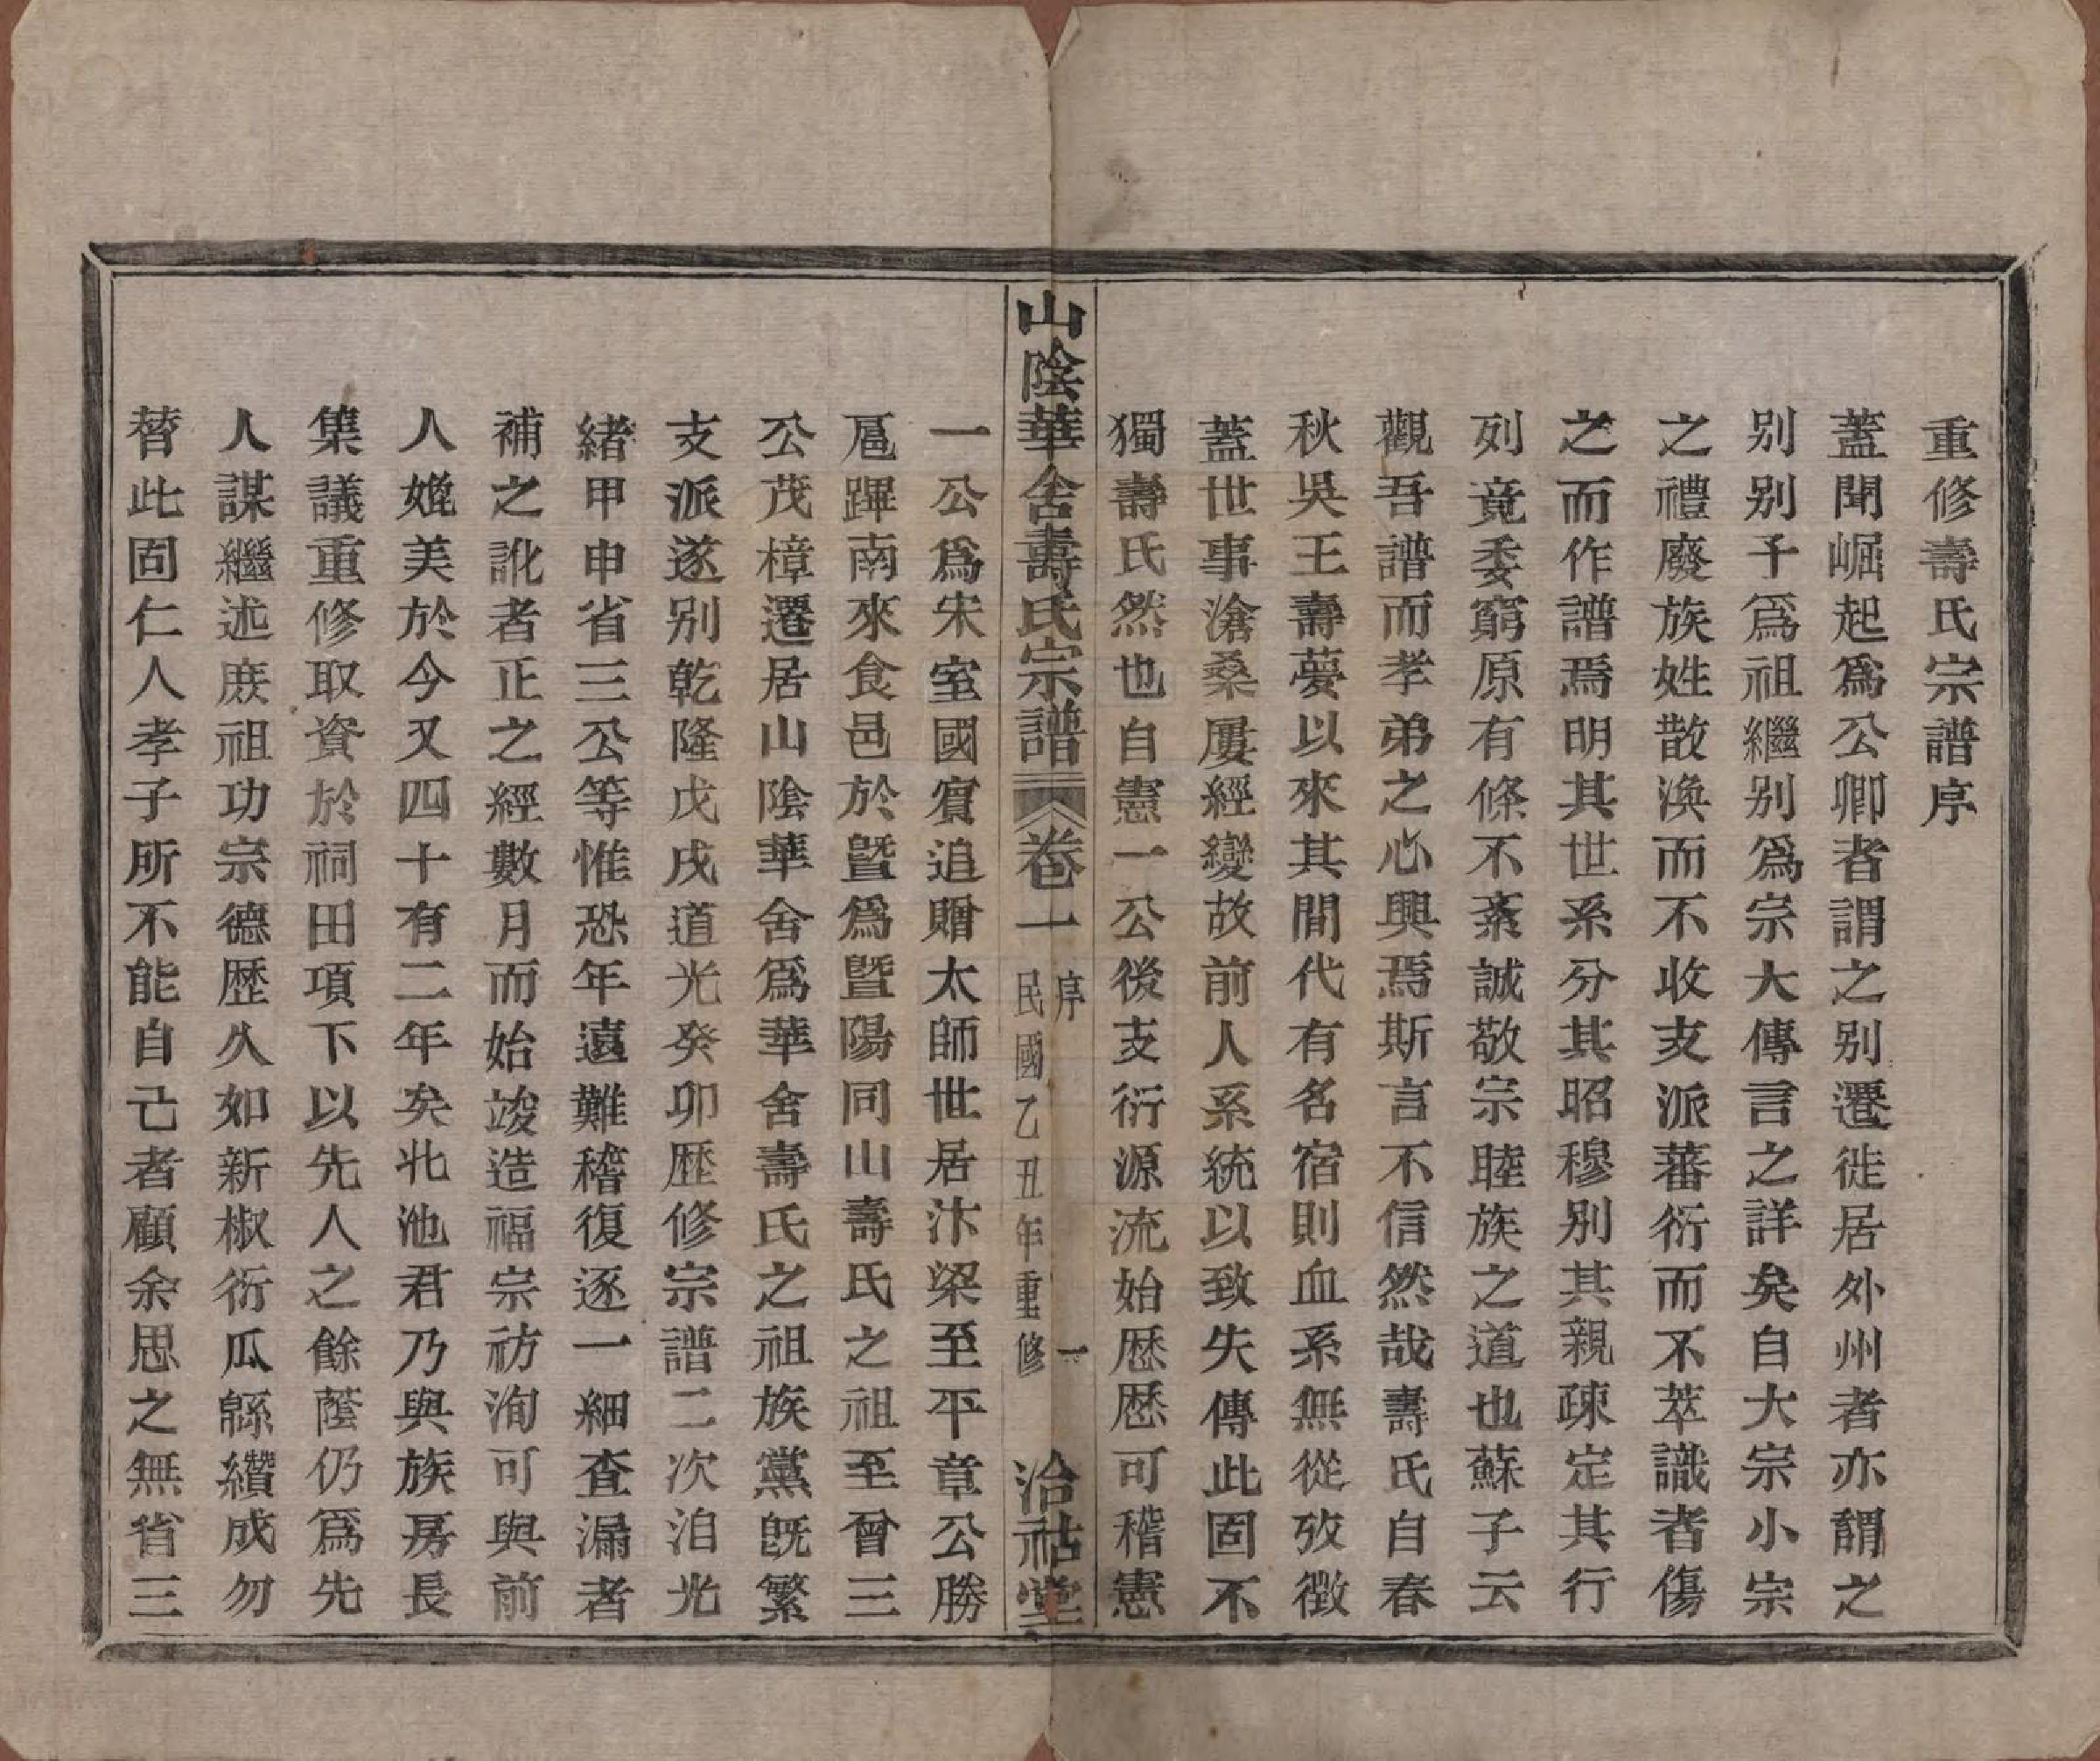 重修壽氏宗譜序
蓋聞崛起爲公卿者謂之别遷徙居外州者亦謂之
别别子爲祖繼别爲宗大傳言之詳矣自大宗小宗
之禮廢族姓散渙而不收支派蕃衍而不萃識者傷
之而作譜焉明其世系分其昭穆别其親疎定其行
列竟委窮原有條不紊誠敬宗睦族之道也蘇子云
觀吾譜而孝弟之心興焉斯言不信然哉壽氏自春
秋吳王壽夢以來其間代有名宿則血系無從攷徵
蓋世事滄桑屢經變故前人系統以致失傳此固不
獨壽氏然也自憲一公後支衍源流始歴歴可稽憲
山陰華舍壽氏宗譜 卷一 序 民國乙丑年重修 一 洽祜堂
一公爲宋室國賓追贈太師世居汴梁至平章公勝
扈蹕南來食邑於暨爲暨陽同山壽氏之祖至曾三
公茂樟遷居山陰華舍爲華舍壽氏之祖族黨既繁
支派遂别乾隆戊戌道光癸卯歴修宗譜二次洎光
緒甲申省三公等惟恐年遠難稽復逐一細查漏者
補之訛者正之經數月而始竣造福宗祊洵可與前
人媲美於今又四十有二年矣北池君乃與族房長
集議重修取資於祠田項下以先人之餘蔭仍爲先
人謀繼述庶祖功宗德歴久如新椒衍瓜緜纘成勿
替此固仁人孝子所不能自己者顧余思之無省三